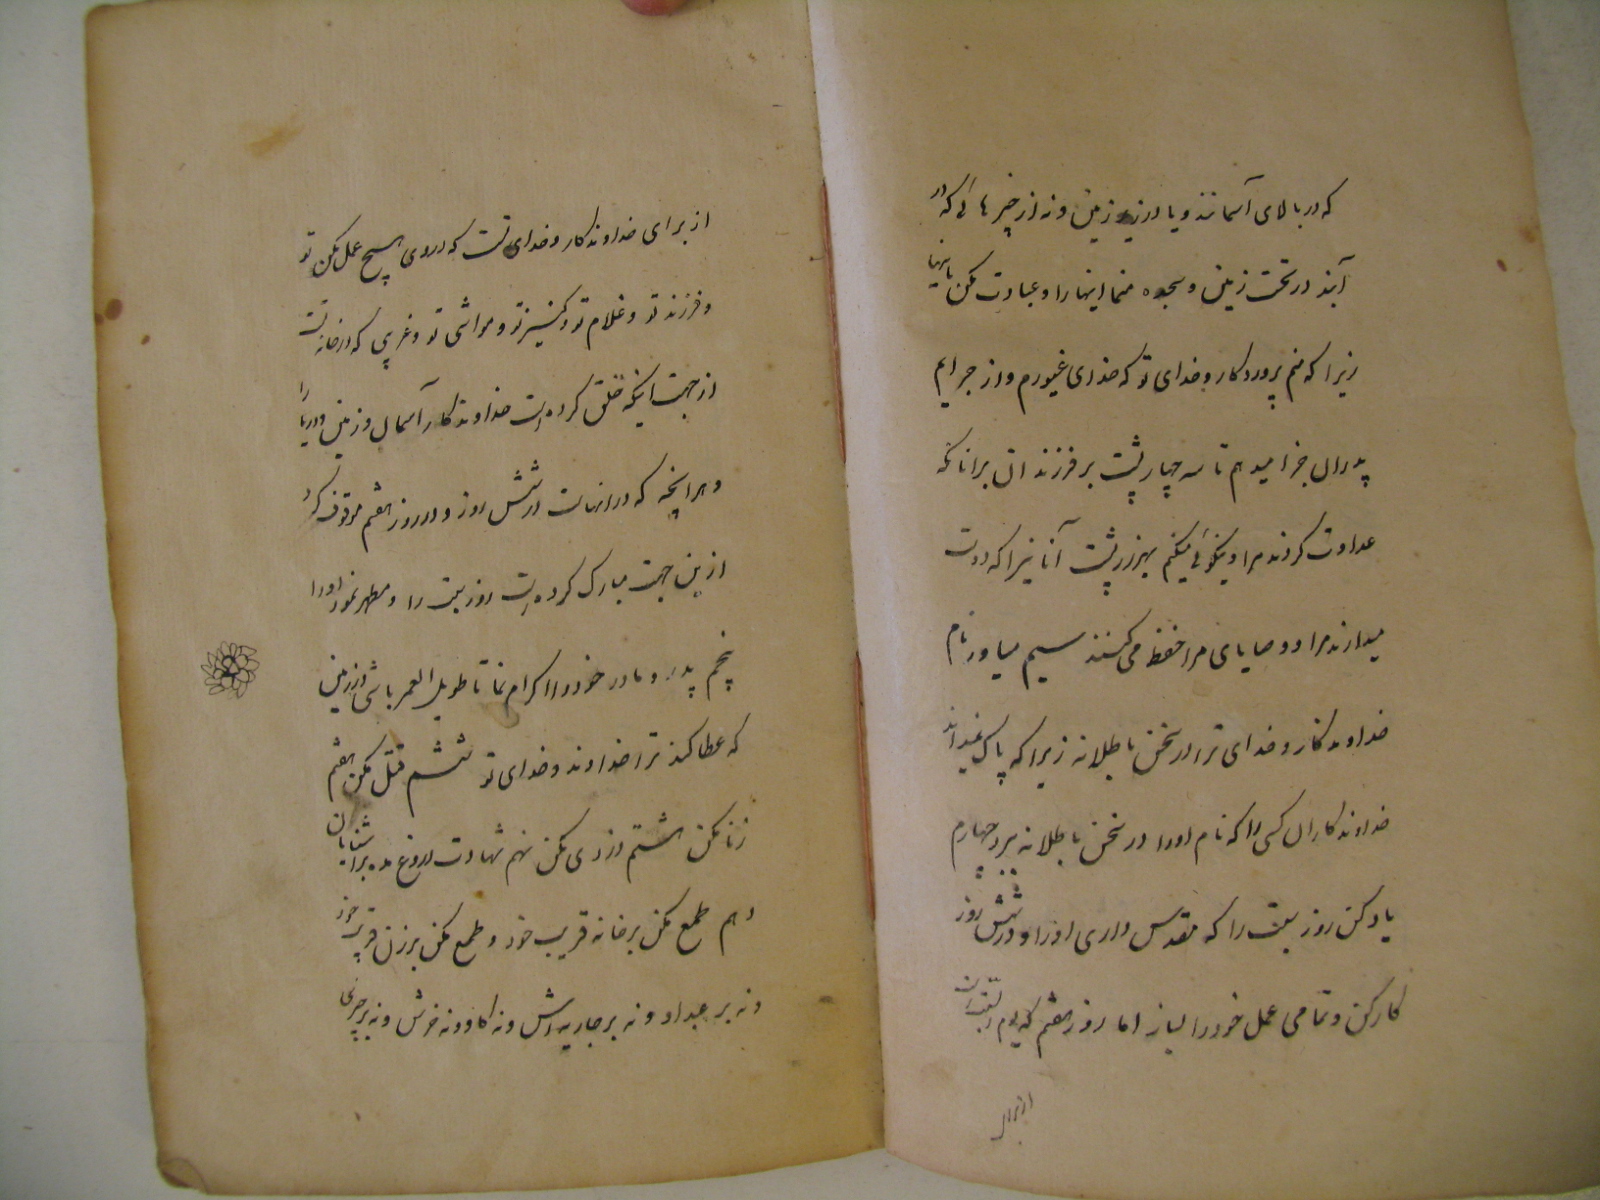 که در بالای آسمانند و یا در زیر زمین و نه از چیز هائی که در
آبند در تحت زمین و سجده منما اینها را و عبادت مکن باینها
زیرا که منم پروردکار و خدای تو که خدای غیورم و از جرایم
پدران جزا میدهم تا سه چهار پشت بر فرزندان برانانکه
عداوت کردند مرا و نیکوئی میکنم بهزار پشت آنانیرا که دوست
میدارند مرا و وصایای مرا حفظ می کنند سیم میاور نام
خداوندکار و خدای ترا در سخن باطلانه زیرا که پاک نمیداند
خداوندکار آن کسی را که نام او را در سخن باطلانه برد چهارم
یاد کن روز سبت را که مقدس داری او را و در شش روز
کار کن و تمامی عمل خود را بساز اما روز هفتم که یوم سبت است
از برای
از برای خداوندکار و خدای تست که در وی هیچ عمل مکن تو
و فرزند تو و غلام تو و کنیز تو و مواشی تو و غریبی که در خانه تست
از جهت اینکه خلق کرده است خداوندکار آسمان و زمین و دریا را
و هر انچه که در انهاست در شش روز و در روز هفتم موقوف کرد
از ین جهت مبارک کرده است روز سبت را و مطهر نمود او را
پنجم پدر و مادر خود را اکرام نما تا طویل العمر باشی در زمین
که عطا کند ترا خداوند و خدای تو ششم قتل مکن هفتم
زنا مکن هشتم دزدی مکن نهم شهادت دروغ مده بر اشنایان
دهم طمع مکن بر خانه قریب خود و طمع مکن بر زن قریب خود
و نه بر عبد او و نه بر جاریه اش و نه کاو و نه خرش و نه بر چیزی